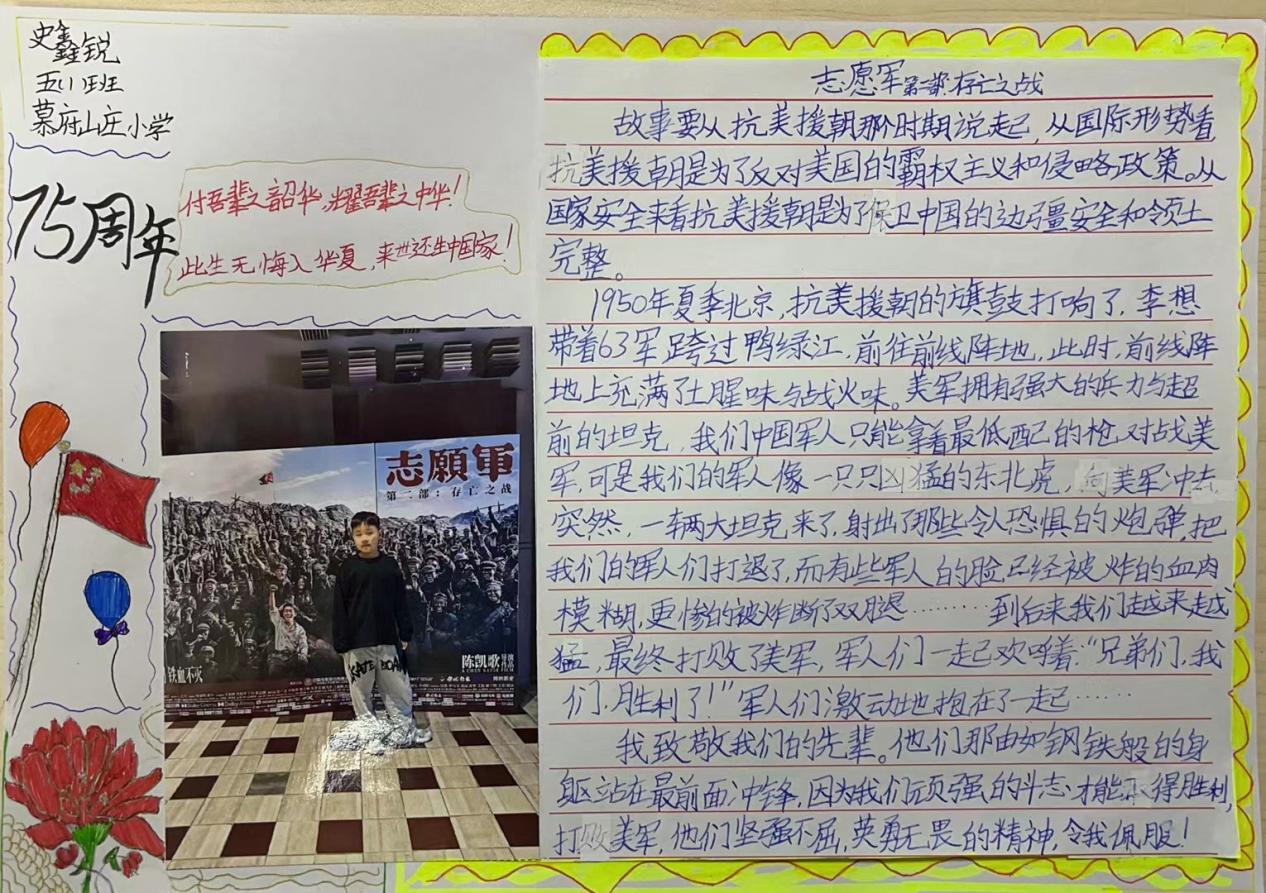 史鑫锐
五(1)班
慕府山庄小学
75周年
付吾辈之韶华,耀吾辈之中华!
此生无悔入华夏,来世还生中国家!
志願軍
第二部:存亡之战
铁血不灭
陈凯歌
导演
作品
KATE BOA
志愿军第二部:存亡之战
故事要从抗美援朝那个时期说起,从国际形势看
抗美援朝是为了反对美国的霸权主义和侵略政策。从
国家安全来看抗美援朝是为了保卫中国的边疆安全和领土
完整。
1950年夏季北京,抗美援朝的旗鼓打响了,李想
带着63军跨过鸭绿江,前往前线阵地,此时,前线阵
地上充满了土腥味与战火味。美军拥有强大的兵力与超
前的坦克,我们中国军人只能拿着最低配的枪对战美
军,可是我们的军人像一只只凶猛的东北虎,向美军冲去,
突然,一辆大坦克来了,射出了那些令人恐惧的炮弹,把
我们的军人们打退了,而有些军人的脸已经被炸的血肉
模糊,更惨的被炸断了双腿………到后来我们越来越
猛,最终打败了美军,军人们一起欢呼着:“兄弟们,我
们,胜利了!”军人们激动地抱在了一起……
我致敬我们的先辈。他们那由如钢铁般的身
躯站在最前面冲锋,因为我们顽强的斗志才能 得胜利,
打败美军,他们坚强不屈,英勇无畏的精神,令我佩服!